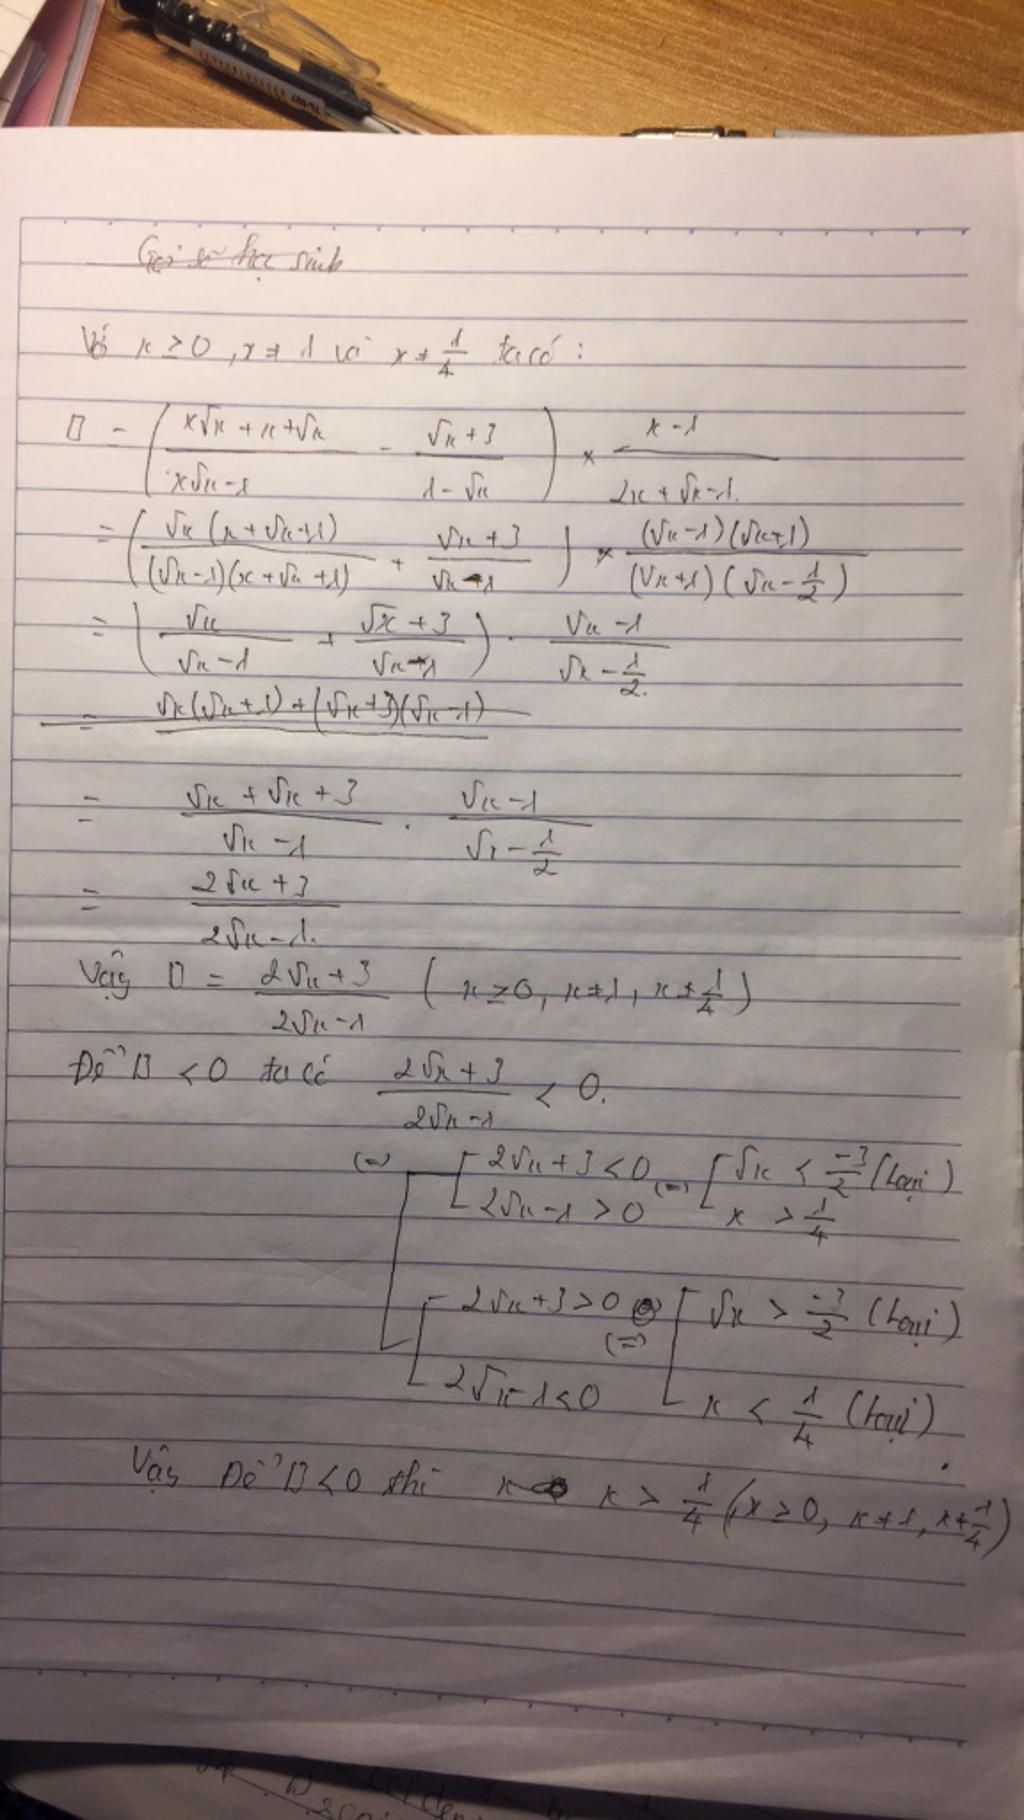 Với x ≥ 0, x ≠ 1 và x ≠ 1/4 ta có :
B = ( (x√x + x +√x)/(x√x - 1) - (√x + 3)/(1 - √x) ) × (x - 1)/(2x + √x - 1)
= ( (√x (x + √x + 1))/((√x - 1)(x + √x + 1)) + (√x + 3)/(√x - 1) ) × ((√x - 1)(√x + 1))/((√x + 1)(√x - 1/2))
= ( √x/(√x - 1) + (√x + 3)/(√x - 1) ) . (√x - 1)/(√x - 1/2)
= √x(√x + 1) + (√x + 3)(√x - 1)
= (√x + √x + 3)/(√x - 1) . (√x - 1)/(√x - 1/2)
= (2√x + 3)/(2√x - 1)
Vậy B = (2√x + 3)/(2√x - 1) ( x ≥ 0, x ≠ 1, x ≠ 1/4 )
Để B < 0 ta có (2√x + 3)/(2√x - 1) < 0.
(=) [ 2√x + 3 < 0 (=) [ √x < -3/2 (Loại)
[ 2√x - 1 > 0 [ x > 1/4
[ 2√x + 3 > 0 (=) [ √x > -3/2 (Loại)
[ 2√x - 1 < 0 [ x < 1/4 (Loại)
Vậy Để B < 0 thì x > 1/4 (x ≥ 0, x ≠ 1, x ≠ 1/4)